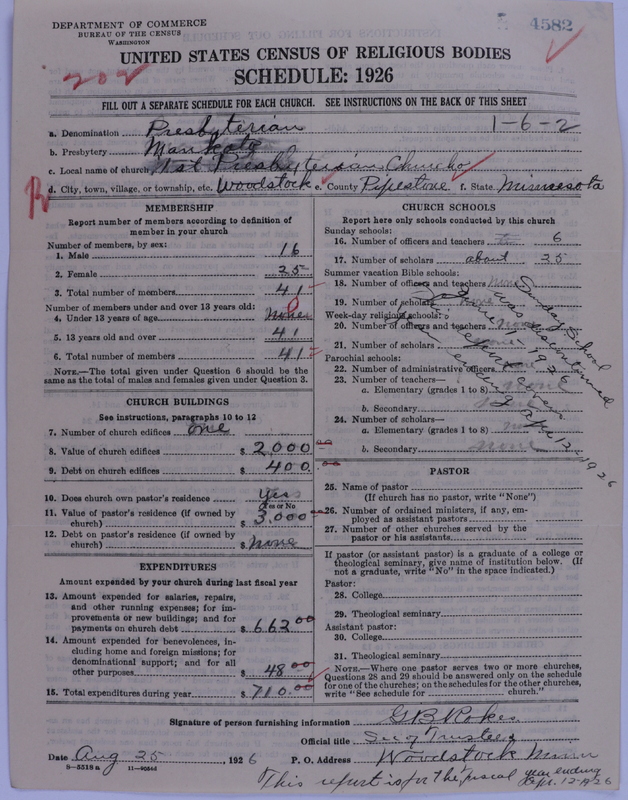 DEPARTMENT OF COMMERCE
BUREAU OF THE CENSUS
WASHINGTON
4582
UNITED STATES CENSUS OF RELIGIOUS BODIES
SCHEDULE: 1926
202
FILL OUT A SEPARATE SCHEDULE FOR EACH CHURCH. SEE INSTRUCTIONS ON THE BACK OF THIS SHEET
1-6-2
a. Denomination Presbyterian
b. Presbytery Mankato
c. Local name of church 1st Presbyterian Church
d. City, town, village, or township, etc. Woodstock e. County Pipestone f. State Minnesota
MEMBERSHIP
Report number of members according to definition of
member in your church
Number of members, by sex:
1. Male 16
2. Female 25
3. Total number of members 41
Number of members under and over 13 years old:
4. Under 13 years of age None 0
5. 13 years old and over 41
6. Total number of members 41
NOTE.—The total given under Question 6 should be the
same as the total of males and females given under Question 3.
CHURCH BUILDINGS
See instructions, paragraphs 10 to 12
7. Number of church edifices one
8. Value of church edifices $ 2,000 00
9. Debt on church edifices $ 400 00
10. Does church own pastor's residence Yes
(Yes or No)
11. Value of pastor's residence (if owned by
church) $ 3,000
12. Debt on pastor's residence (if owned by
church) $ None
EXPENDITURES
Amount expended by your church during last fiscal year
13. Amount expended for salaries, repairs,
and other running expenses; for im-
provements or new buildings; and for
payments on church debt $ 662 00
14. Amount expended for benevolences, in-
cluding home and foreign missions; for
denominational support; and for all
other purposes $ 48 00
15. Total expenditures during year $ 710.00
CHURCH SCHOOLS
Report here only schools conducted by this church
Sunday schools:
16. Number of officers and teachers 6
17. Number of scholars about 25
Summer vacation Bible schools:
18. Number of officers and teachers none
19. Number of scholars none
Week-day religious schools:
20. Number of officers and teachers none
21. Number of scholars none
Parochial schools:
22. Number of administrative officers none
23. Number of teachers—
a. Elementary (grades 1 to 8) none
b. Secondary none
24. Number of scholars—
a. Elementary (grades 1 to 8)
b. Secondary none
Sunday School
was discontinued
June 1926
report covers
ending Apr 12-1926
PASTOR
25. Name of pastor
(If church has no pastor, write "None")
26. Number of ordained ministers, if any, em-
ployed as assistant pastors
27. Number of other churches served by the
pastor or his assistants
If pastor (or assistant pastor) is a graduate of a college or
theological seminary, give name of institution below. (If
not a graduate, write "No" in the space indicated.)
Pastor:
28. College
29. Theological seminary
Assistant pastor:
30. College
31. Theological seminary
NOTE.—Where one pastor serves two or more churches,
Questions 28 and 29 should be answered only on the schedule
for one of the churches; on the schedules for the other churches,
write "See schedule for church."
Signature of person furnishing information G B Rokes
Official title Sec of Trustees
Date Aug 25 1926 P. O. Address Woodstock Minn
9-5518a 11-9054d
This report is for the fiscal year ending
Apr. 12-1926